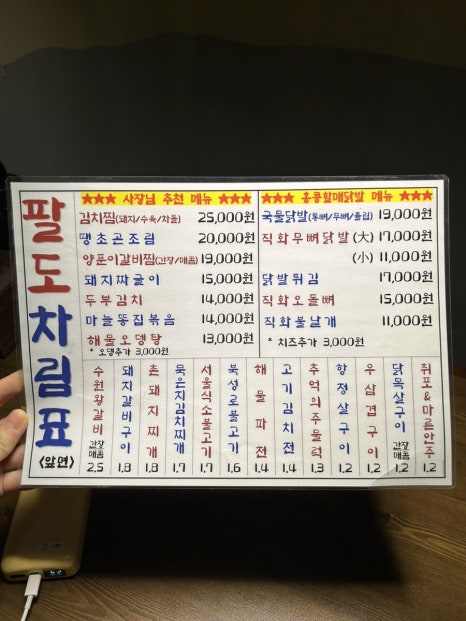 팔도차림표
<앞면>
★★★ 사장님 추천 메뉴 ★★★
김치찜(돼지/수육/차돌) 25,000원
땡초곤조림 20,000원
양푼이갈비찜(간장/매콤) 19,000원
돼지짜글이 15,000원
두부김치 14,000원
마늘똥집볶음 14,000원
해물오뎅탕 13,000원
* 오뎅추가 3,000원
★★★ 홍콩할매닭발 메뉴 ★★★
국물닭발(통뼈/무뼈/튤립) 19,000원
직화무뼈닭발(大) 17,000원
(小) 11,000원
닭발튀김 17,000원
직화오돌뼈 15,000원
직화불날개 11,000원
* 치즈추가 3,000원
수원왕갈비 간장 매콤 2.5
돼지갈비구이 1.8
촌돼지찌개 1.8
묵은지김치찌개 1.7
서울식소불고기 1.7
북성로불고기 1.6
해물파전 1.4
고기김치전 1.4
추억의주물럭 1.3
항정살구이 1.2
우삼겹구이 1.2
닭목살구이 간장 매콤 1.2
쥐포&마른안주 1.2